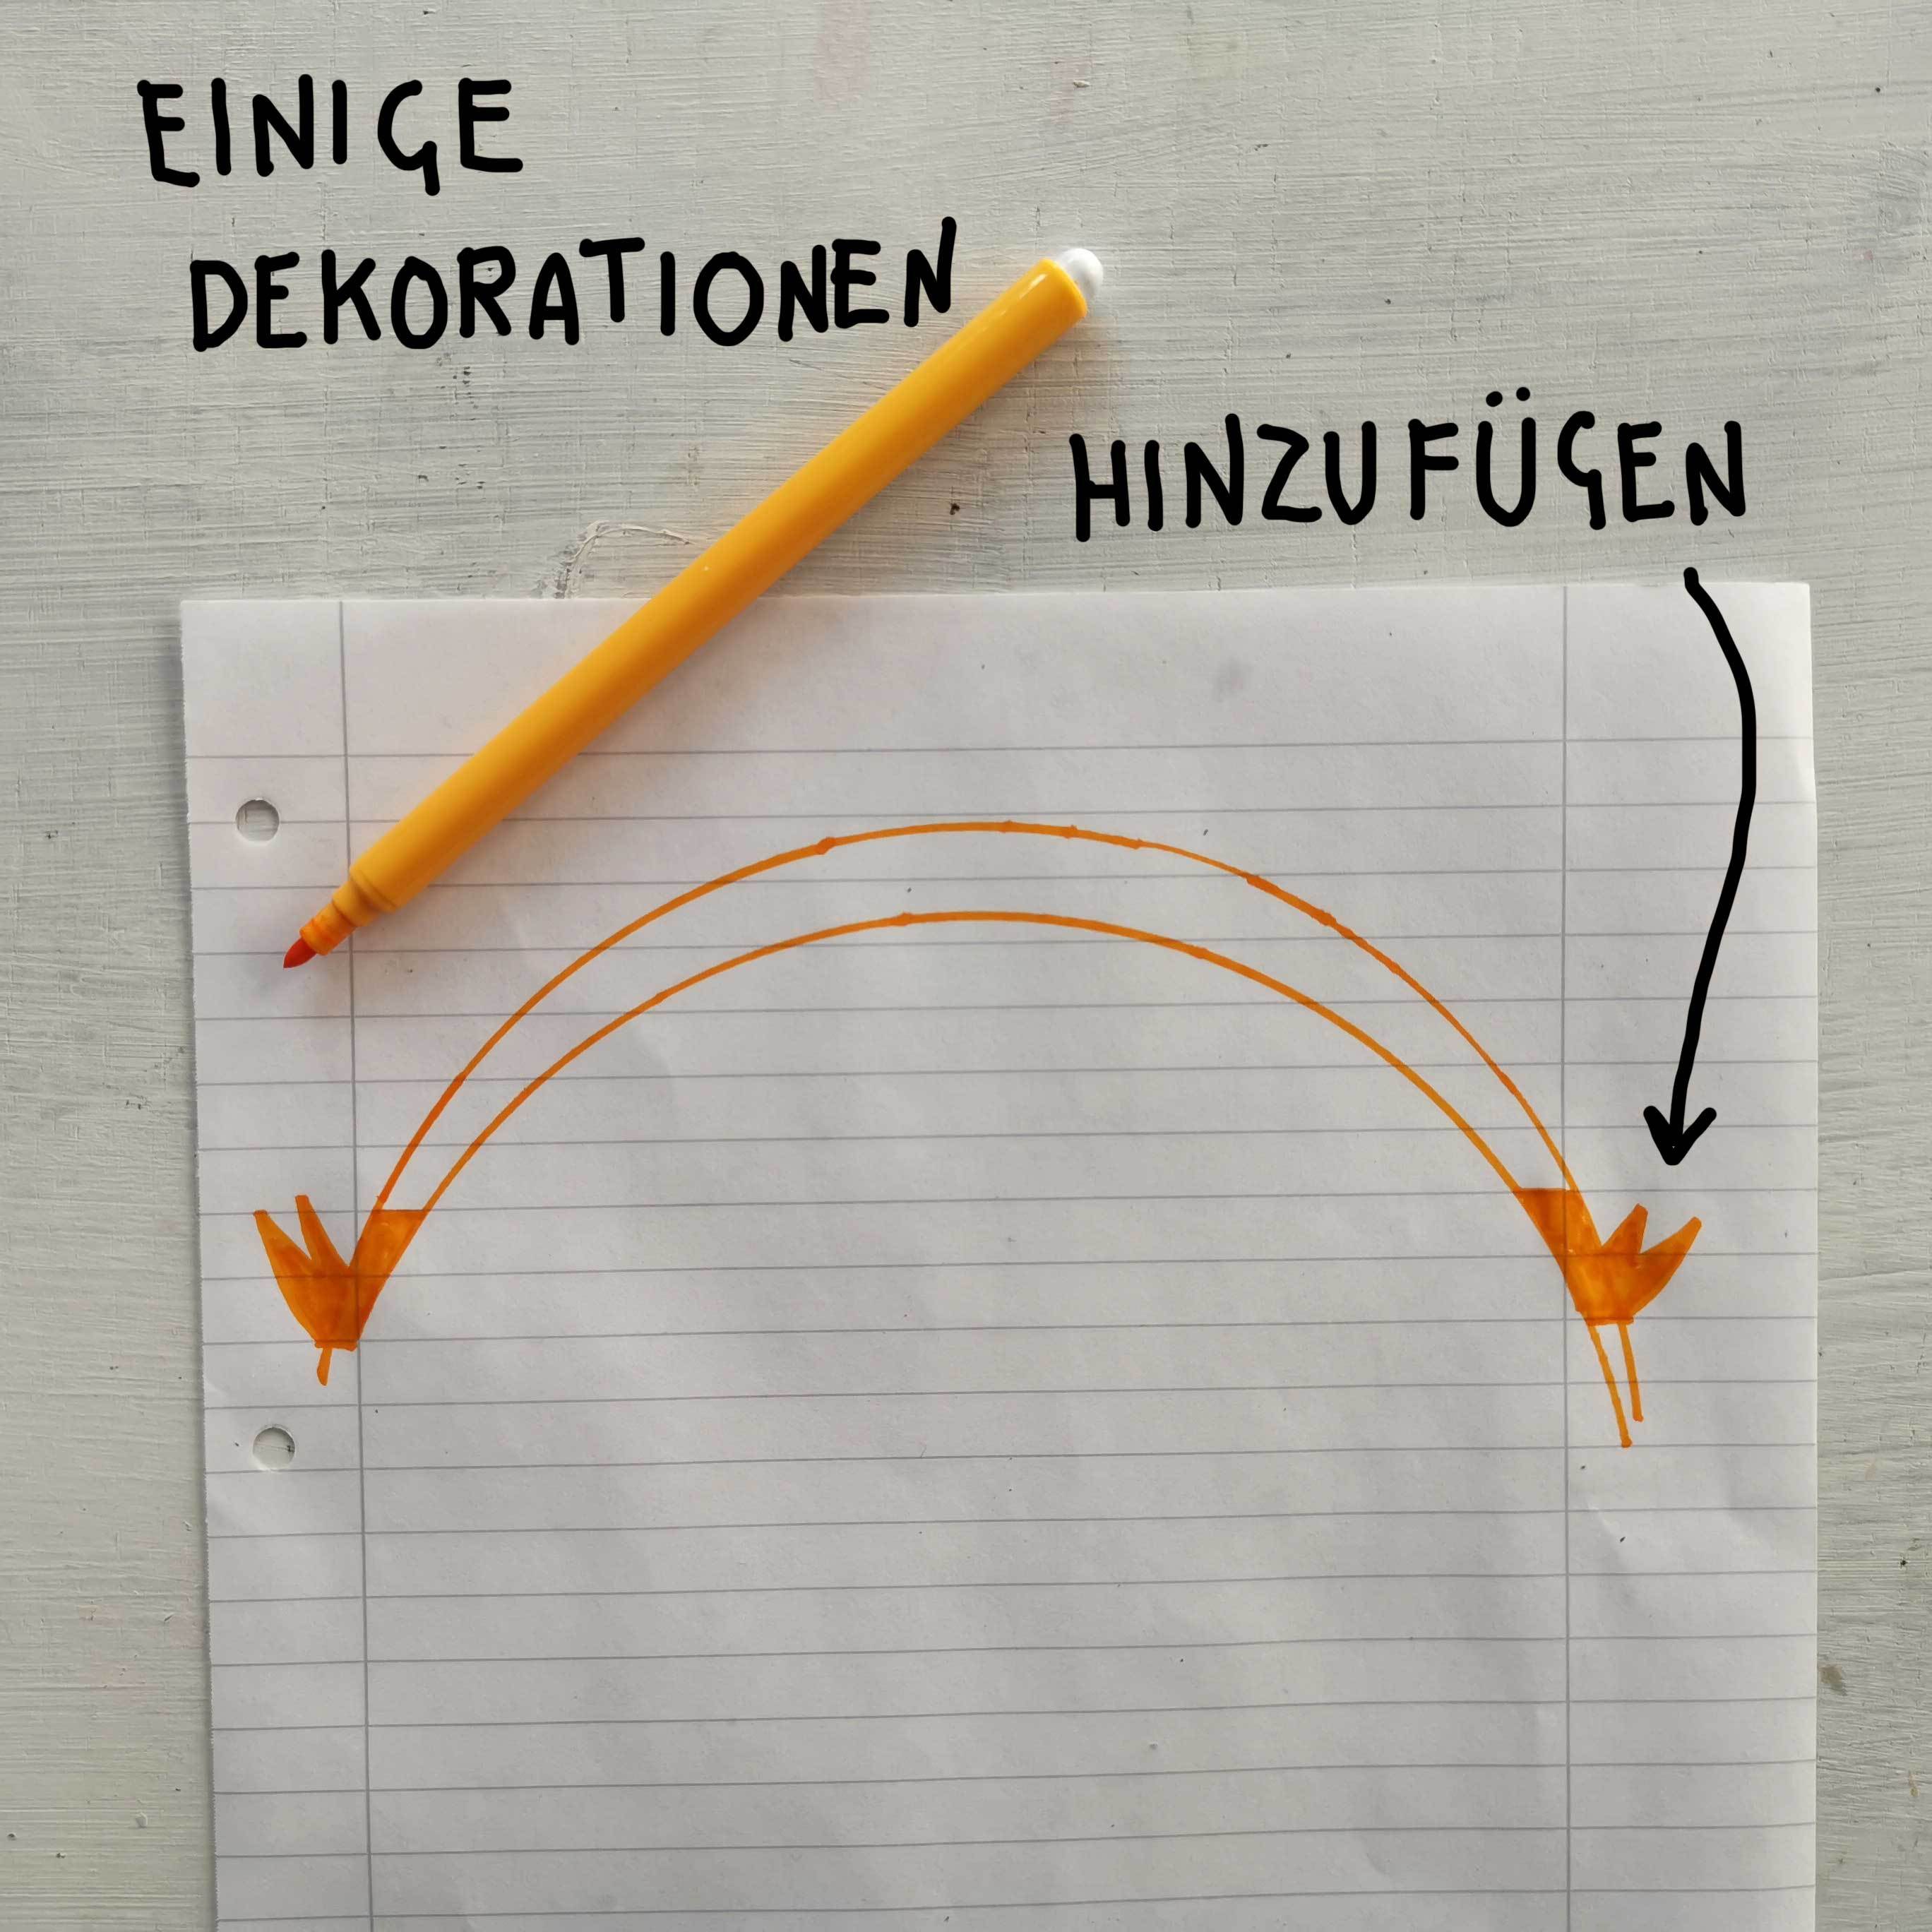 EINIGE
DEKORATIONEN
HINZUFÜGEN